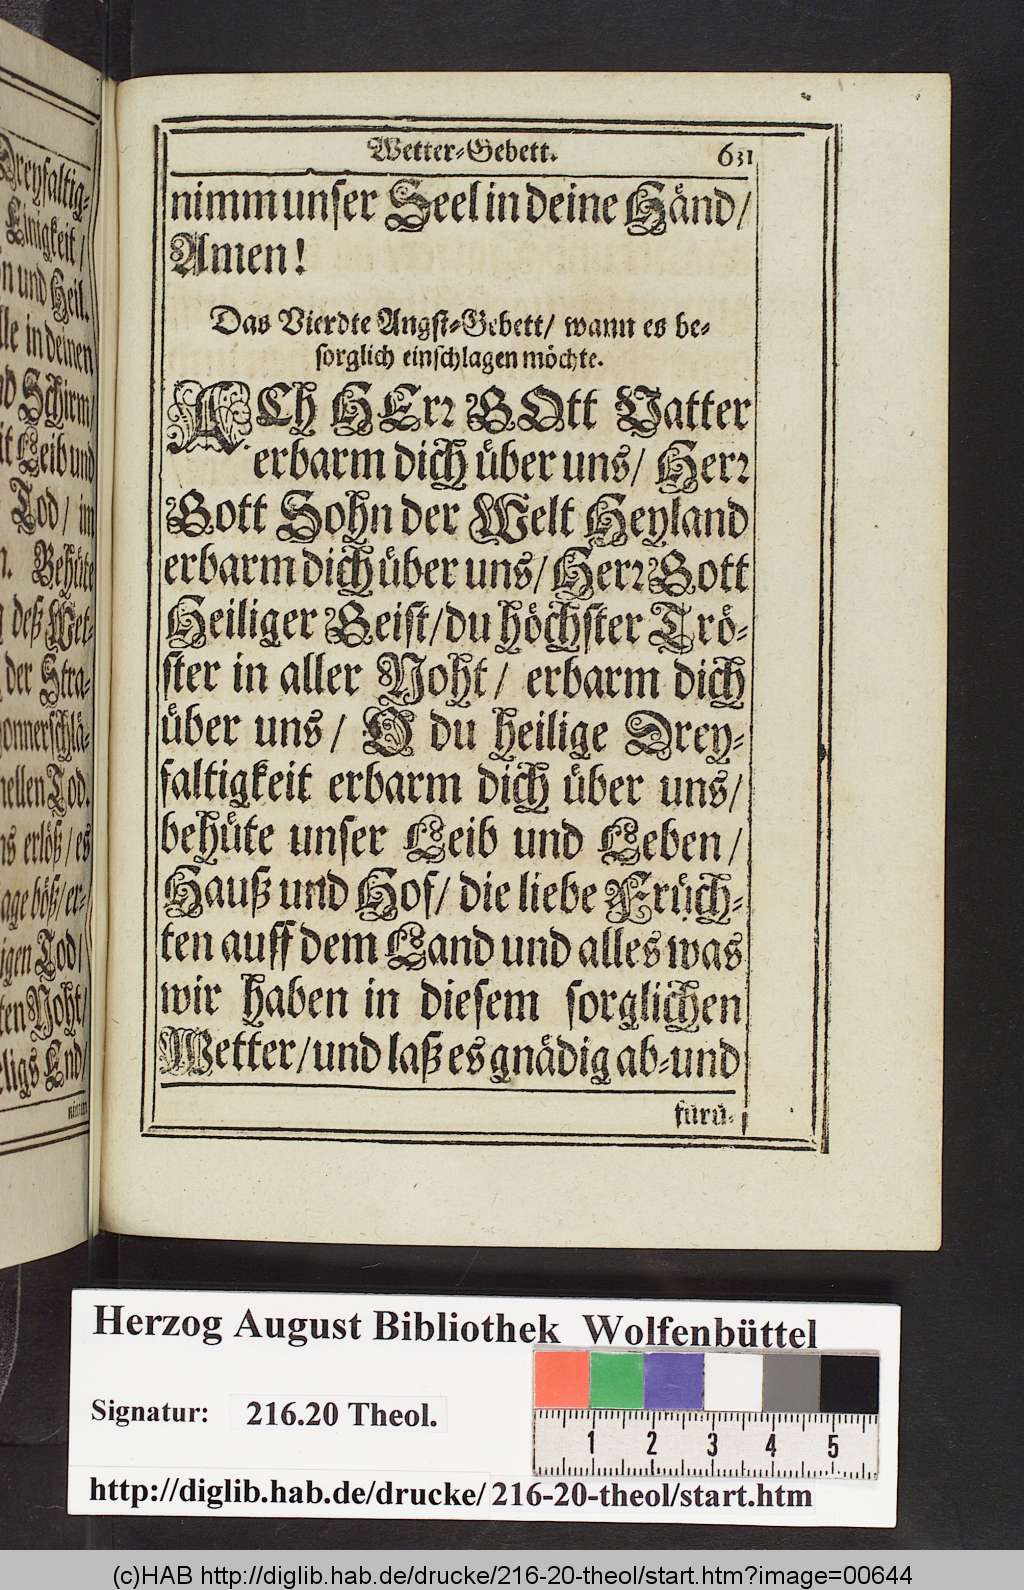 Dreyfaltig-
Einigkeit /
und Heil.
in deinen
Schirm /
Leib und
Tod / im
Behüte
deß Wet-
der Stra-
onnerschlä-
nellen Tod.
erlöß / es
böß / er-
Tod /
Noht /
End /
nimm
Wetter-Gebett. 631
nimm unser Seel in deine Händ /
Amen!
Das Vierdte Angst-Gebett / wann es be-
sorglich einschlagen möchte.
ACh HErr GOtt Vatter
erbarm dich über uns / Herr
Gott Sohn der Welt Heyland
erbarm dich über uns / Herr Gott
Heiliger Geist / du höchster Trö-
ster in aller Noht / erbarm dich
über uns / O du heilige Drey-
faltigkeit erbarm dich über uns /
behüte unser Leib und Leben /
Hauß und Hof / die liebe Früch-
ten auff dem Land und alles was
wir haben in diesem sorglichen
Wetter / und laß es gnädig ab- und
fürü-
Herzog August Bibliothek Wolfenbüttel
Signatur: 216.20 Theol.
1 2 3 4 5
http://diglib.hab.de/drucke/216-20-theol/start.htm
(c)HAB http://diglib.hab.de/drucke/216-20-theol/start.htm?image=00644